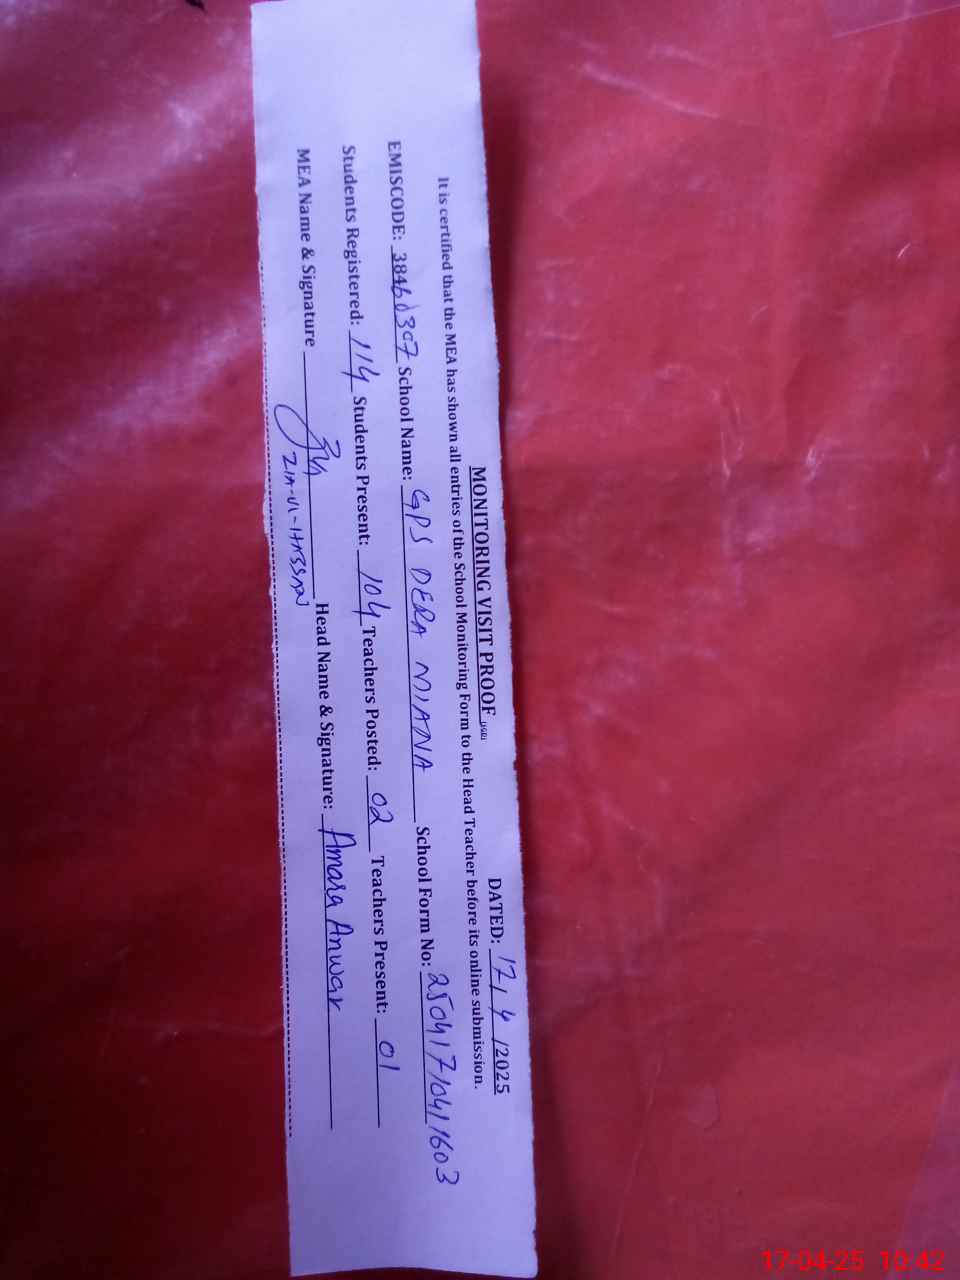 MONITORING VISIT PROOF (SGD)
DATED: 17/4/2025
It is certified that the MEA has shown all entries of the School Monitoring Form to the Head Teacher before its online submission.
EMISCODE: 38460307 School Name: GPS DERA MIANA School Form No: 25041710411603
Students Registered: 114 Students Present: 104 Teachers Posted: 02 Teachers Present: 01
MEA Name & Signature Head Name & Signature: Amara Anwar
ZIA-UL-HASSAN
17-04-25 10:42